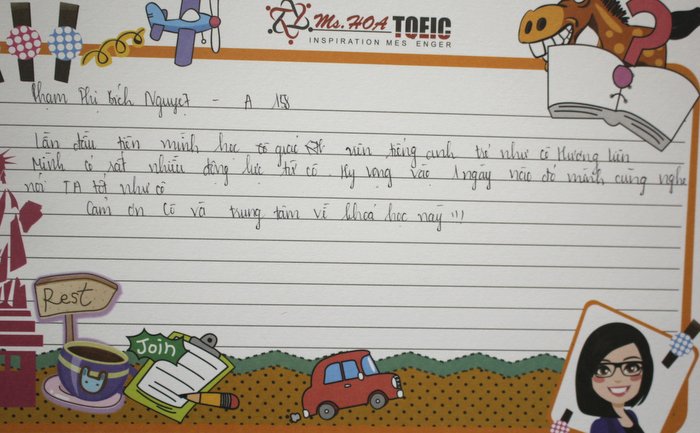 Ms. HOA TOEIC
INSPIRATION MES ENGER
Phạm Thị Bích Nguyệt - A 158
Lần đầu tiên mình học cô giáo viên tiếng anh trẻ như cô Hương nên
Mình có rất nhiều động lực từ cô. Hy vọng vào 1 ngày nào đó mình cũng nghe
nói TA tốt như cô
Cảm ơn Cô và trung tâm về khoá học này !!!
Rest
Join